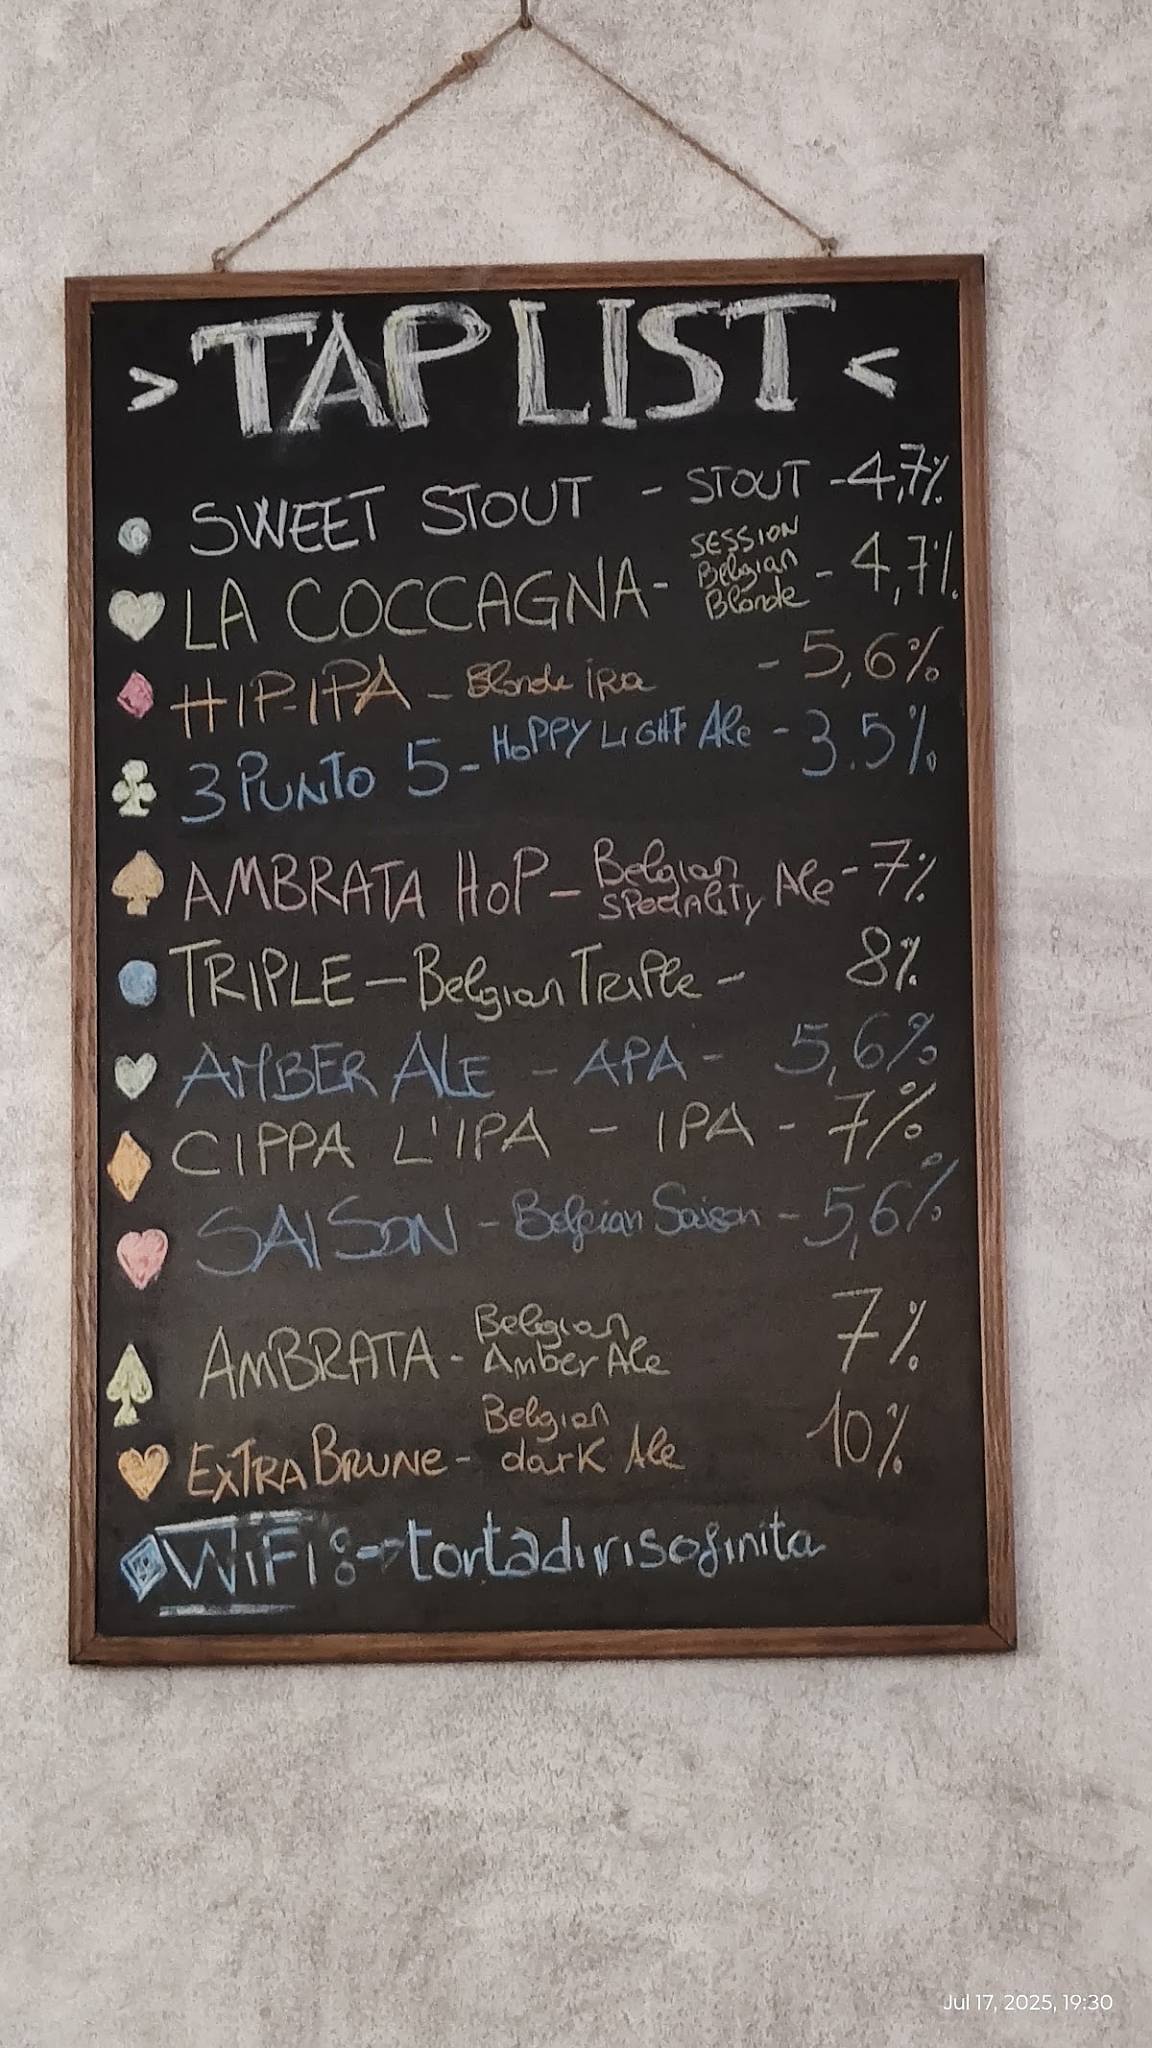 > TAP LIST <
SWEET STOUT - STOUT - 4,7%
LA COCCAGNA - SESSION Belgian Blonde - 4,7%
HIP-IPA - Blonde ipa - 5,6%
3 PUNTO 5 - HoPPY LIGHT Ale - 3.5%
AMBRATA HoP - Belgian SPECIALITY Ale - 7%
TRIPLE - Belgian Triple - 8%
AMBER ALE - APA - 5,6%
CIPPA L'IPA - IPA - 7%
SAISON - Belgian Saison - 5,6%
AMBRATA - Belgian Amber Ale 7%
EXTRA BRUNE - Belgian dark Ale 10%
WiFi : → tortadirisofinita
Jul 17, 2025, 19:30